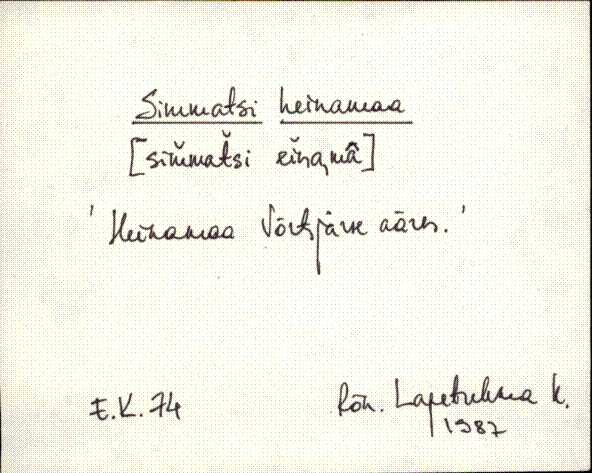 Simmatsi heinamaa
[sim̆mat̆si eĭnamâ]
' Heinamaa Võrtsjärve ääres. '
E.K. 74
Rõn. Lapetukme k.
1987